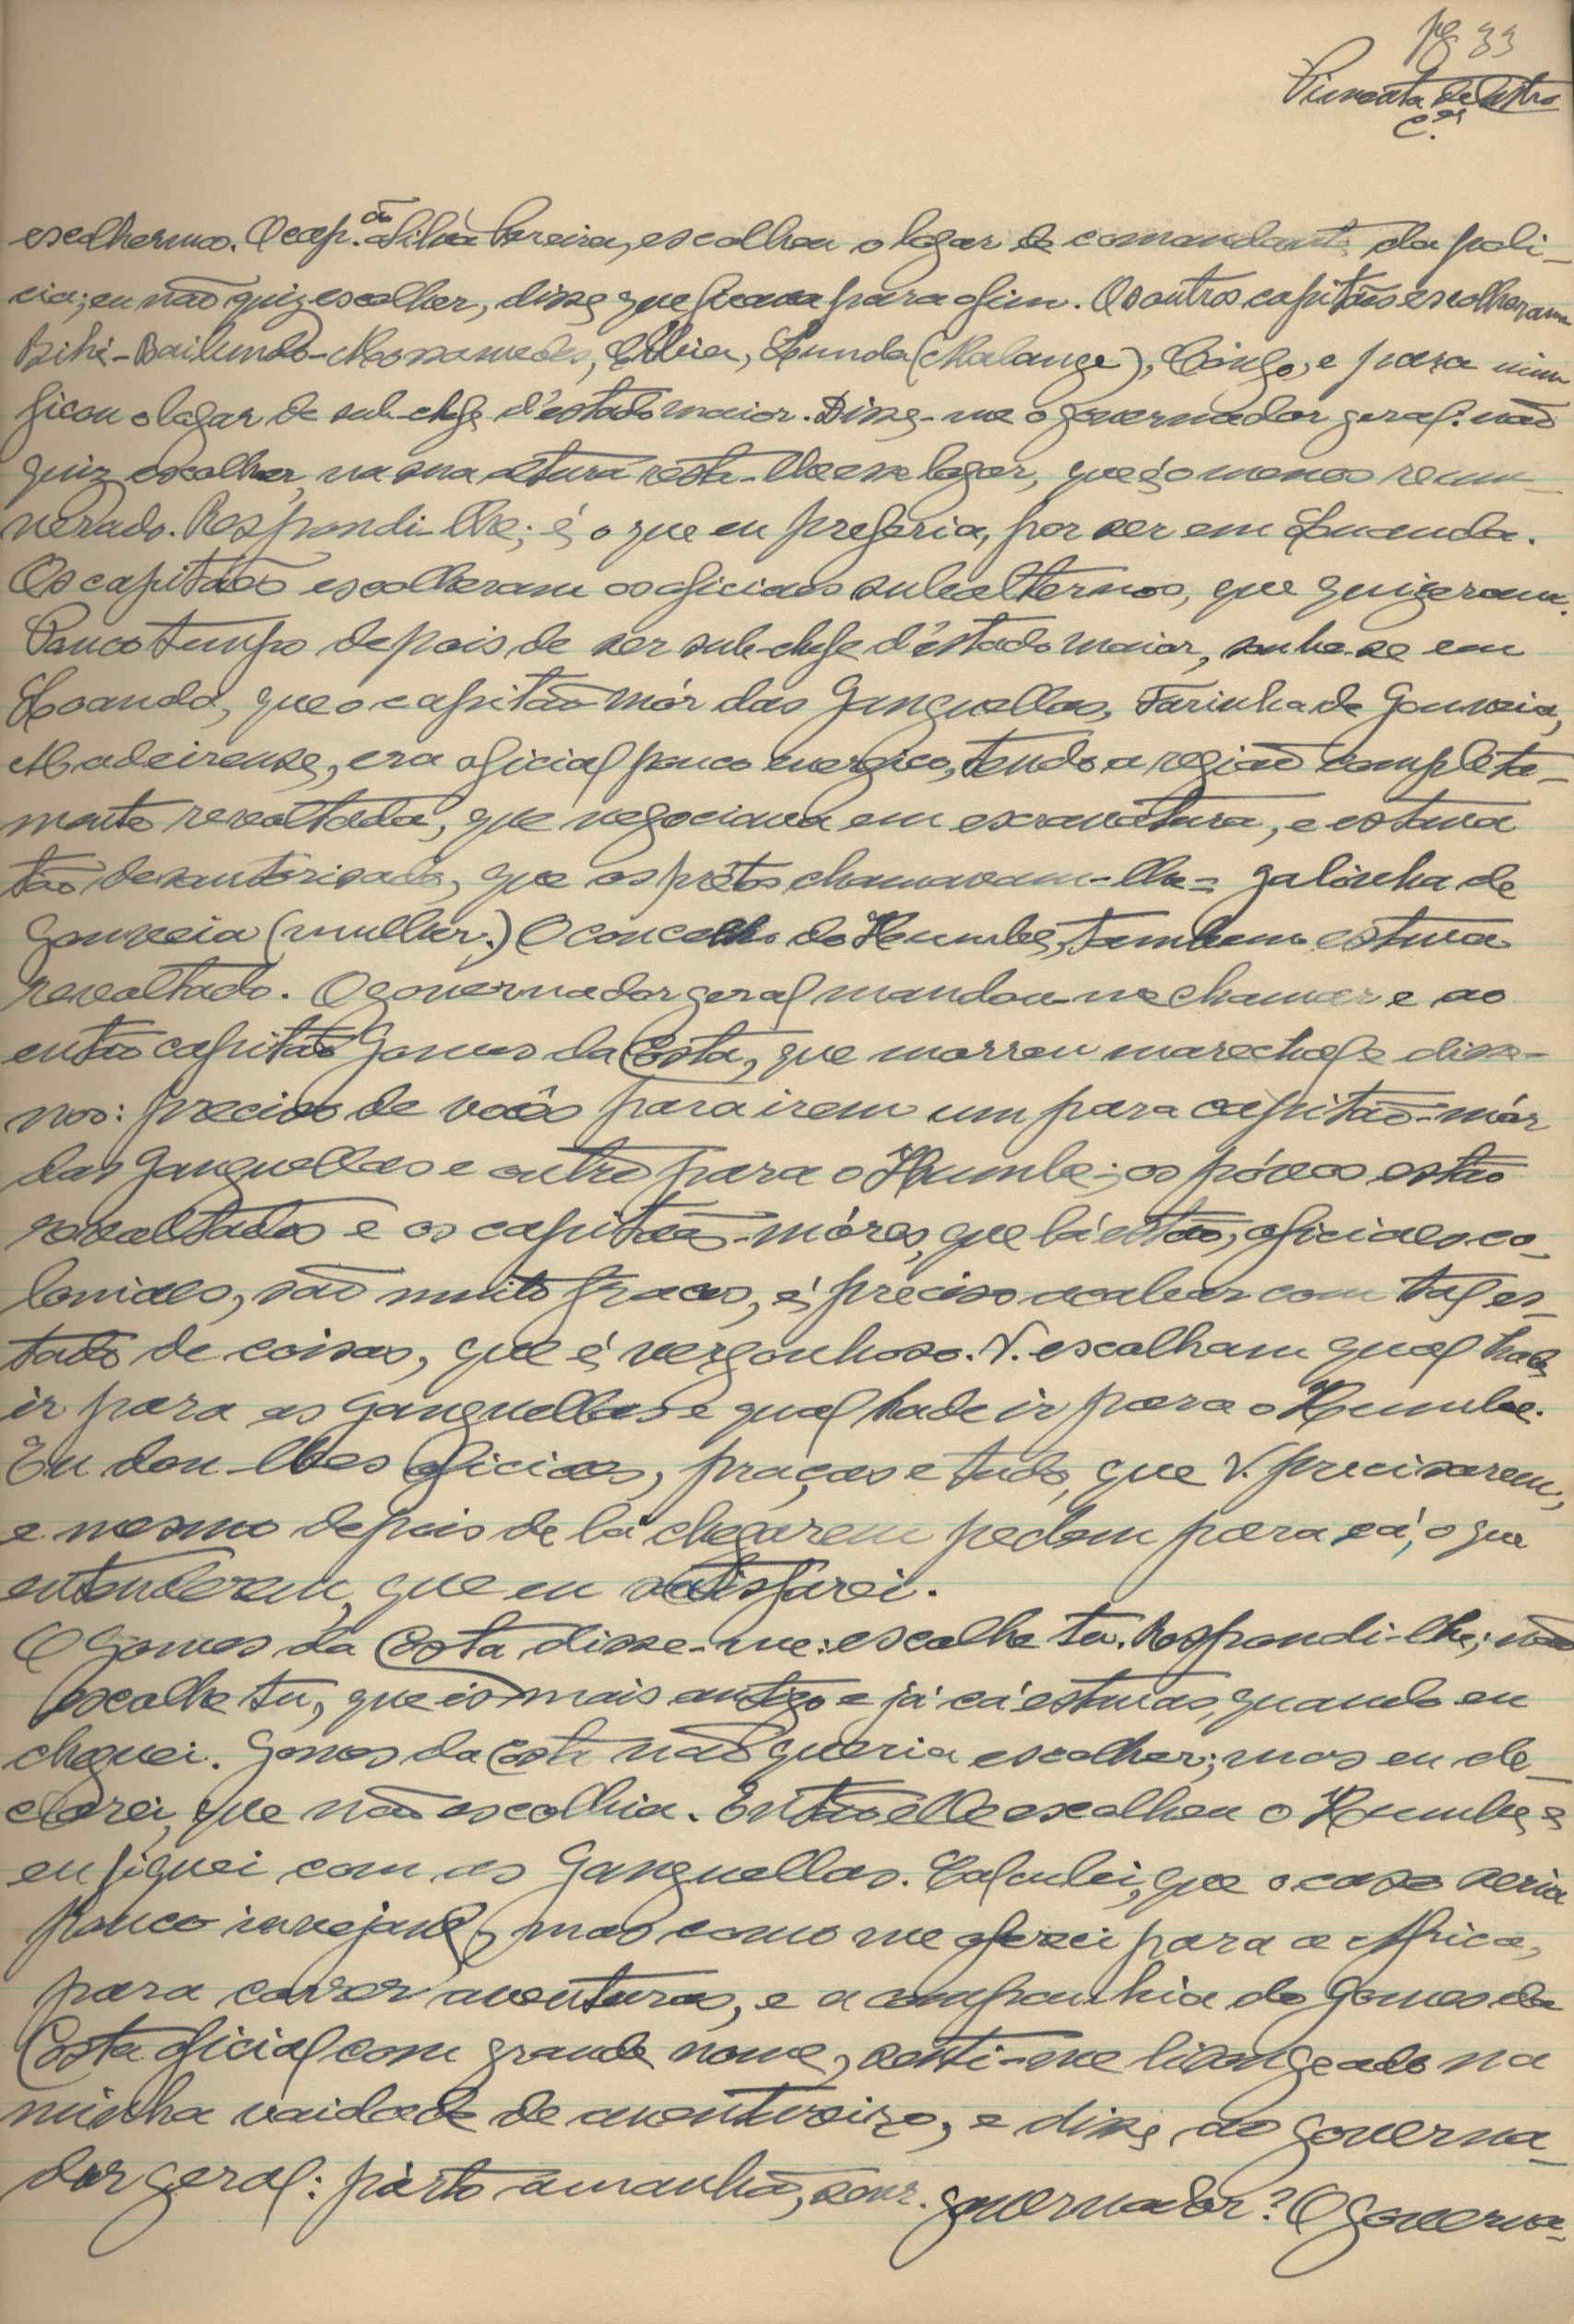 pg 33
Pimenta de Castro
C.el
escolhermos. O cap.ão Silva Pereira, escolheu o logar de comandante da poli-
cia; eu não quiz escolher, disse que ficava para o fim. Os outros capitães escolheram
Bihé-Bailundo-Mossamedes, Huila, Lunda (Malange), Congo, e para mim
ficou o logar de sub-chefe d'estado maior. Disse-me o governador geral: não
quiz escolher, na sua altura resta-lhe esse logar, que é o menos remu-
nerado. Respondi-lhe; é o que eu preferia, por ser em Luanda.
Os capitães escolheram os oficiaes subalternos, que quizeram.
Pouco tempo depois de ser sub-chefe d'estado maior, soube-se em
Loanda, que o capitão-mór das Ganguellas, Farinha de Gouveia,
Madeirense, era oficial pouco energico, tendo a região completa-
mente revoltada, que negociava em escravatura, e estava
tão desautorisado, que os prêtos chamavam-lhe = galinha de
Gouveia (mulher.) O concelho do Humbe, tambem estava
revoltado. O governador geral mandou-me chamar e ao
então capitão Gomes da Costa, que morreu marechal e disse-
nos: preciso de vocês para irem um para capitão-mór
das Ganguellas e outro para o Humbe; os póvos estão
revoltados e os capitães-móres, que lá estão, oficiaes co-
loniaes, são muito fracos, é preciso acabar com tal es-
tado de coisas, que é vergonhoso. V. escolham qual hade
ir para as Ganguellas e qual hade ir para o Humbe.
Eu dou-lhes oficiaes, praças e tudo, que V. precisarem,
e mesmo depois de lá chegarem pedem para cá, o que
entenderem, que eu satisfarei.
O Gomes da Costa disse-me: escolhe tu. Respondi-lhe; não
escolhe tu, que és mais antigo e já cá estavas, quando eu
cheguei. Gomes da Costa não queria escolher; mas eu de-
clarei, que não escolhia. Então elle escolheu o Humbe e
eu fiquei com as Ganguellas. Calculei, que o caso seria
pouco invejavel, mas como me ofereci para a Africa,
para correr aventuras, e a companhia do Gomes da
Costa oficial com grande nome, senti-me lisongeado na
minha vaidade de aventureiro, e disse ao governa-
dor geral: párto amanhã, senr. governador? O governa-